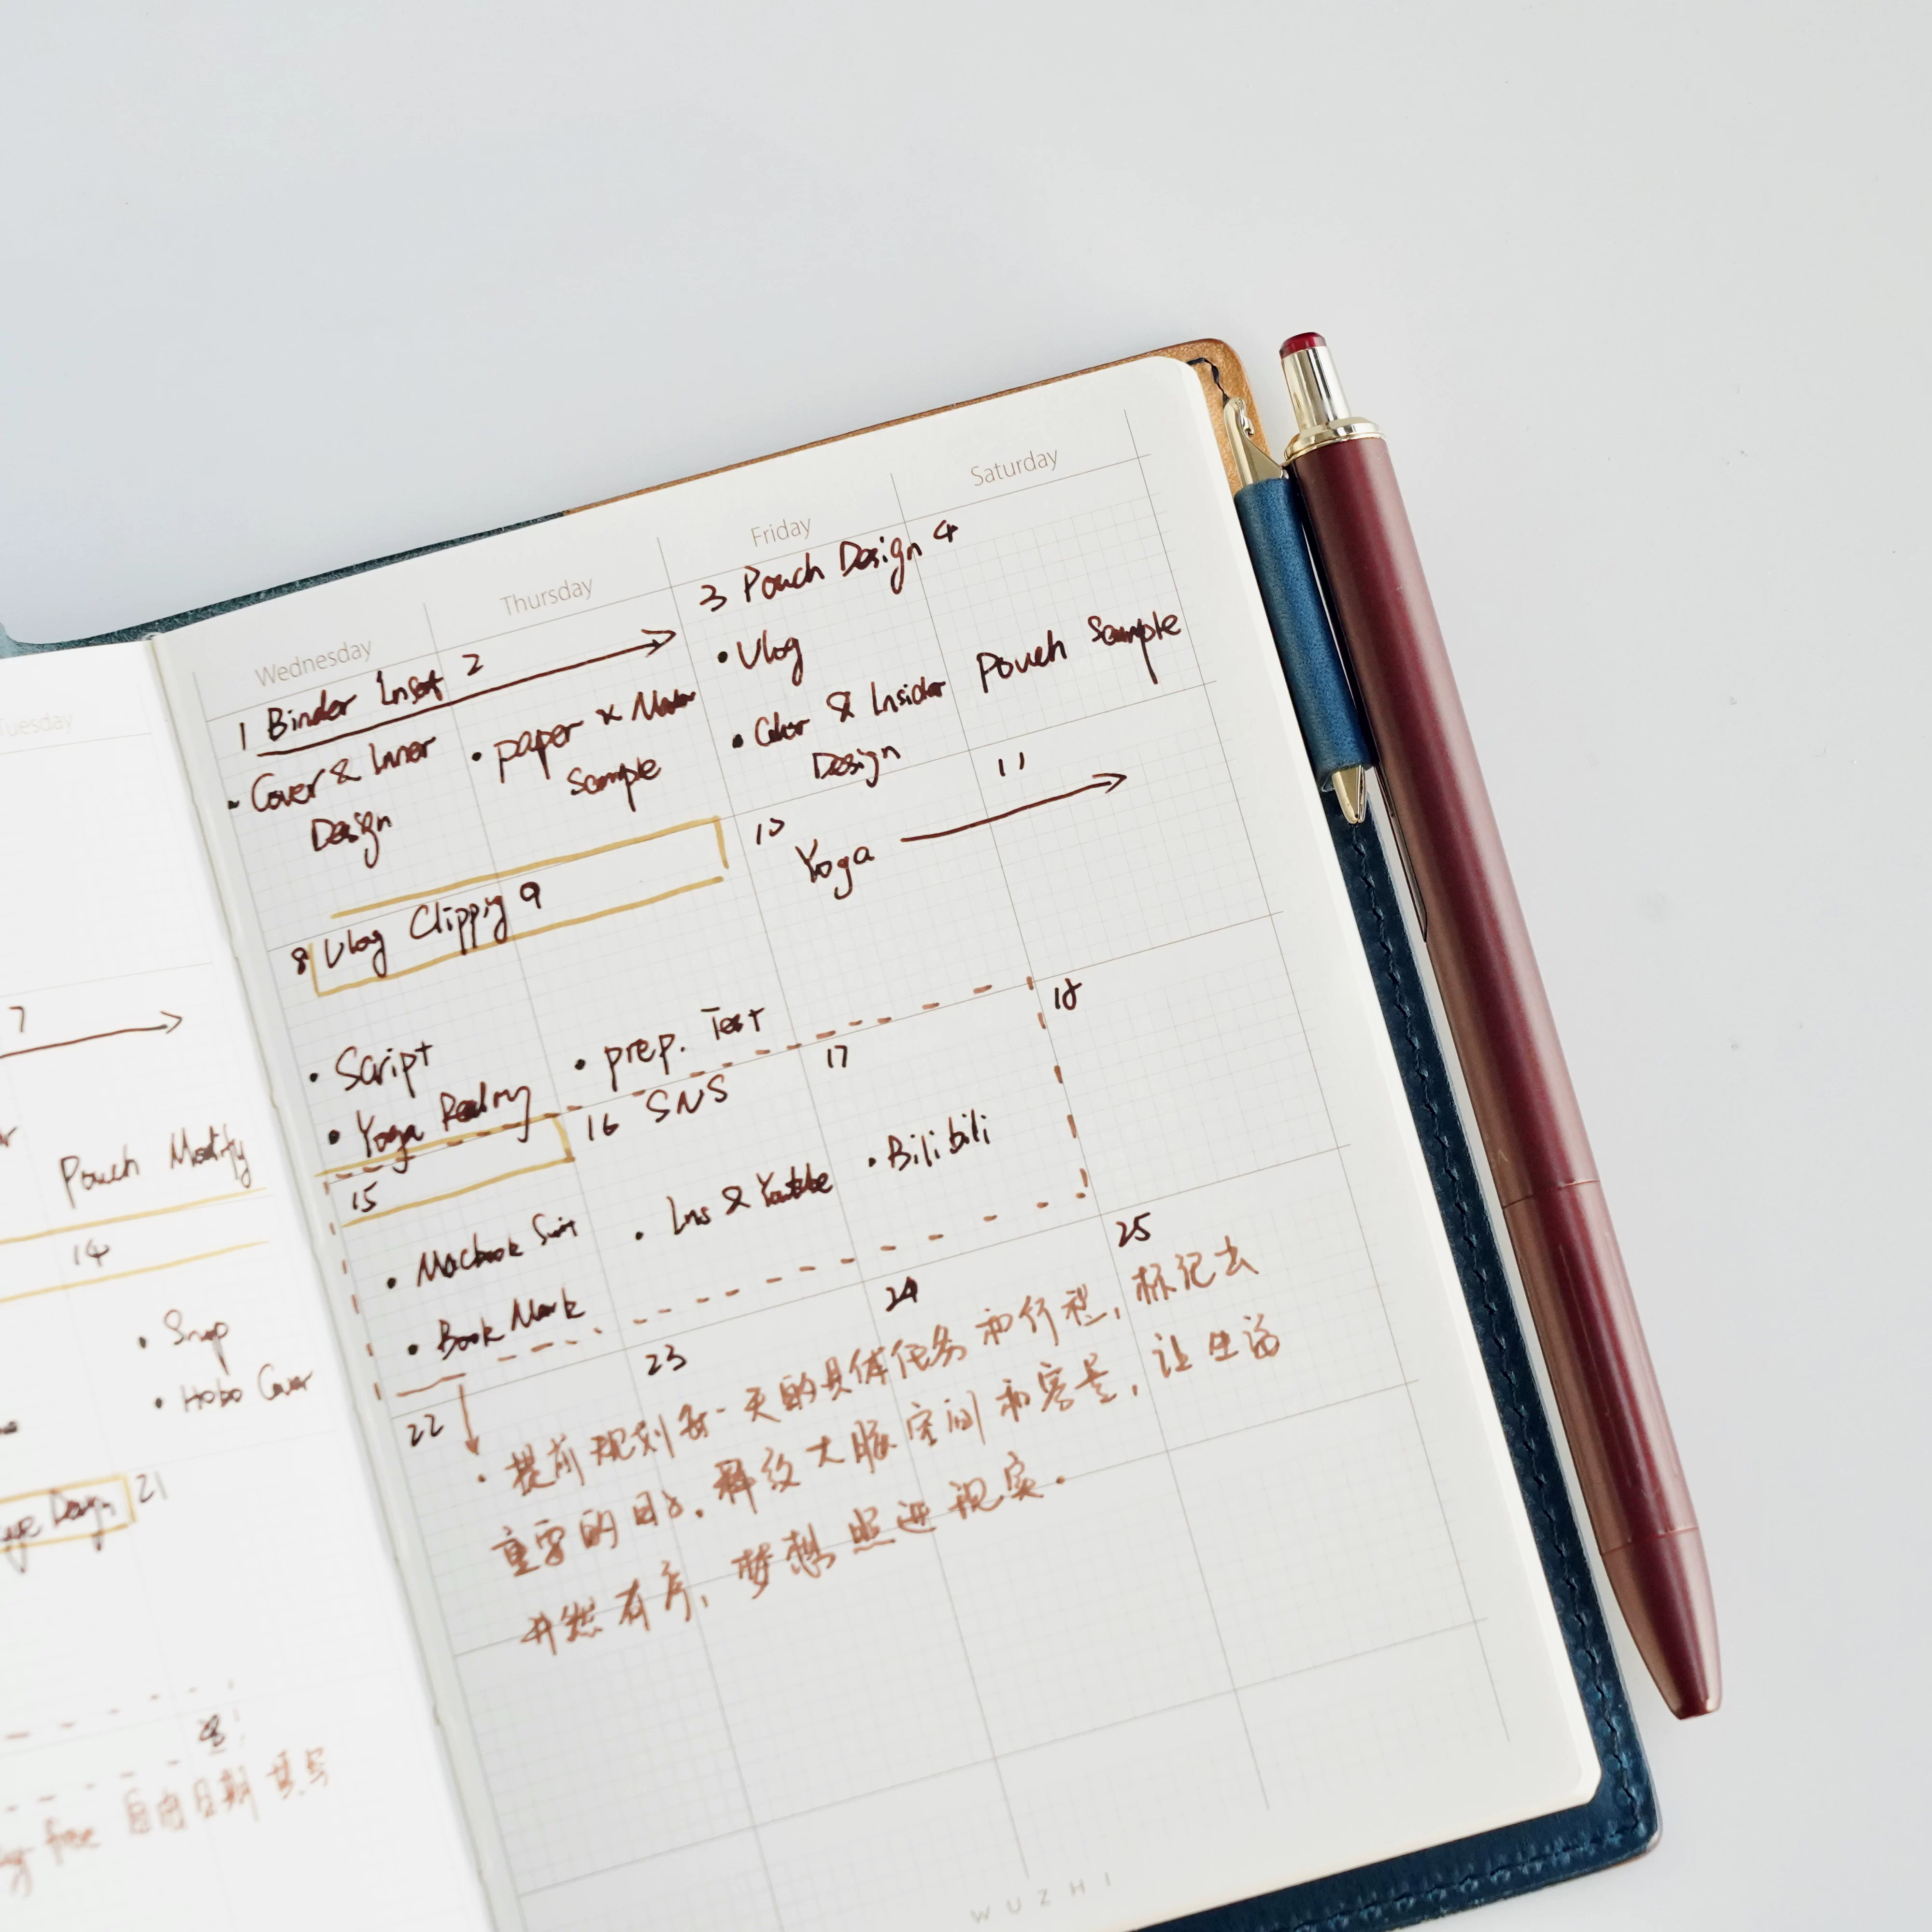 Tuesday
7
Pouch Modify
14
• Snap
• Hobo Cover
Design 21
free 自由日期填写
Wednesday
Thursday
Friday
Saturday
1 Binder Inset 2
3 Pouch Design 4
• Cover & Inner
Design
• paper x
Sample
• Vlog
• Color & Insider
Design
Pouch Sample
8 Vlog Clippig 9
10
Yoga
11
• Script
• Yoga
• prep. Test
15
16 SNS
17
18
• Macbook
• Book Mark
• Ins & Youtube
• Bilibili
22
23
24
25
• 提前规划每一天的具体任务和行程，标记去
重要的目标. 释放大脑空间和容量，让生活
井然有序，梦想照进现实.
WUZHI